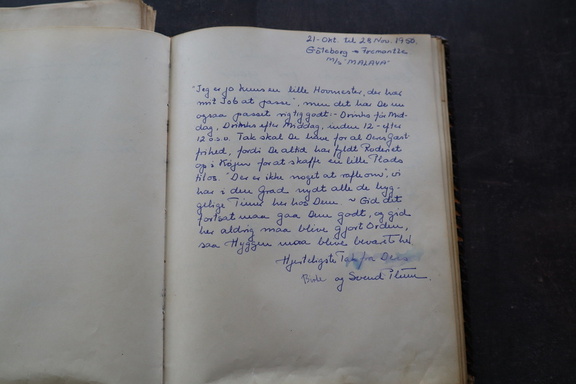 21-Okt. til 28 Nov. 1950.
Göteborg - Fremantle
M/S "MALAYA"
"Jeg er jo kun en lille Hovmester, der har
mit Job at passe", men det har De nu
ogsaa passet rigtig godt. - Drinks før Mid-
dag, Drinks efter Middag, inden 12 - efter
12 o.s.v. Tak skal De have for al Deres Gæst-
frihed, fordi De altid har fyldt Roderiet
op i Køjen for at skaffe en lille Plads
til os. "Der er ikke noget at rafle om", vi
har i den Grad nydt alle de hyg-
gelige Timer her hos Dem. ~ Gid det
fortsat maa gaa Dem godt, og gid
her aldrig maa blive gjort Orden,
saa Hyggen maa blive bevaret
Hjerteligste Tak fra
og Svend